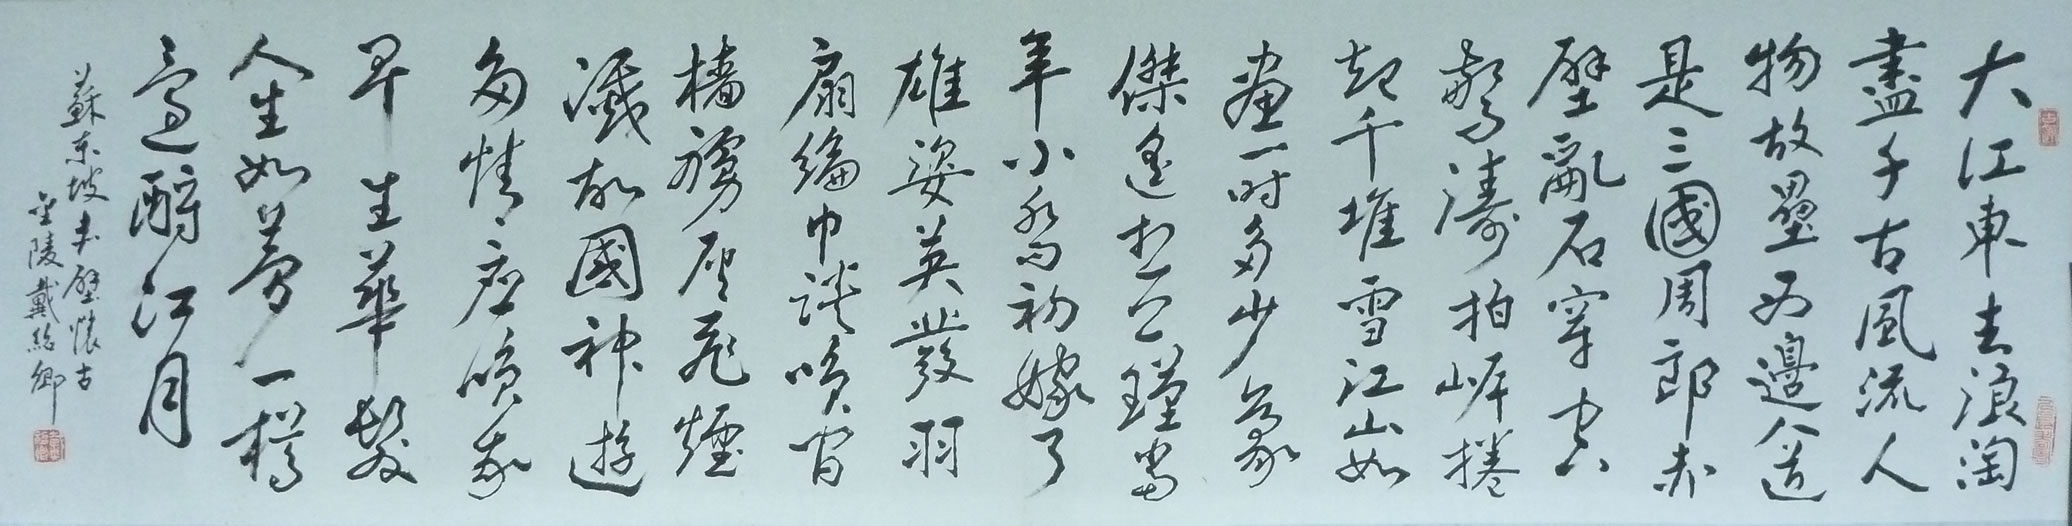 大江東去浪淘
盡千古風流人
物故壘西邊人道
是三國周郎赤
壁亂石穿空
驚濤拍岸捲
起千堆雪江山如
畫一時多少豪
傑遙想公瑾當
年小喬初嫁了
雄姿英發羽
扇綸巾談笑間
檣艣灰飛煙
滅故國神遊
多情應笑我
早生華髮
人生如夢一樽
還酹江月
蘇東坡赤壁懷古
金陵戴卿